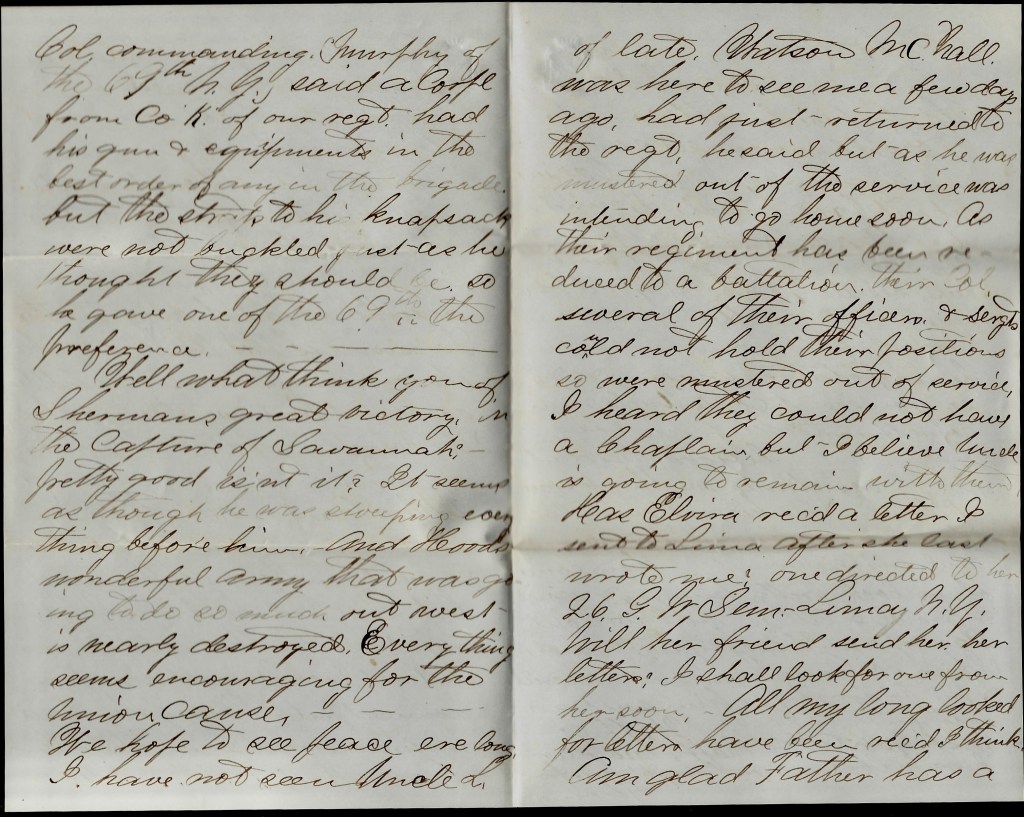 Col. commanding. Murphy of
the 69th N.Y. said a Corpl
from Co K. of our regt. had
his gun & equipments in the
best order of any in the brigade.
but the straps to his knapsack
were not buckled just as he
thought they should be. so
he gave one of the 69th the
preference.
Well what think you of
Shermans great victory, in
the Capture of Savannah:
pretty good is'nt it? It seems
as though he was sweeping every
thing before him. And Hoods
wonderful army that was go
ing to do so much out west
is nearly destroyed. Everything
seems encouraging for the
Union Cause.
We hope to see peace ere long
I have not seen Uncle L.
of late. Watson McCall.
was here to see me a few days
ago, had just returned to
the regt, he said but as he was
mustered out of the service was
intending to go home soon. As
their regiment has been re
duced to a battalion. their Col.
several of their officers. & sergts
could not hold their positions
so were mustered out of service,
I heard they could not have
a Chaplain but I believe Uncle
is going to remain with them.
Has Elvira rec'd a letter I
sent to Lima after she last
wrote me? one directed to her
26. G. W. Sem. Lima, N.Y.
Will her friend send her her
letters? I shall look for one from
her soon. - All my long looked
for letters have been rec'd I think.
Am glad Father has a